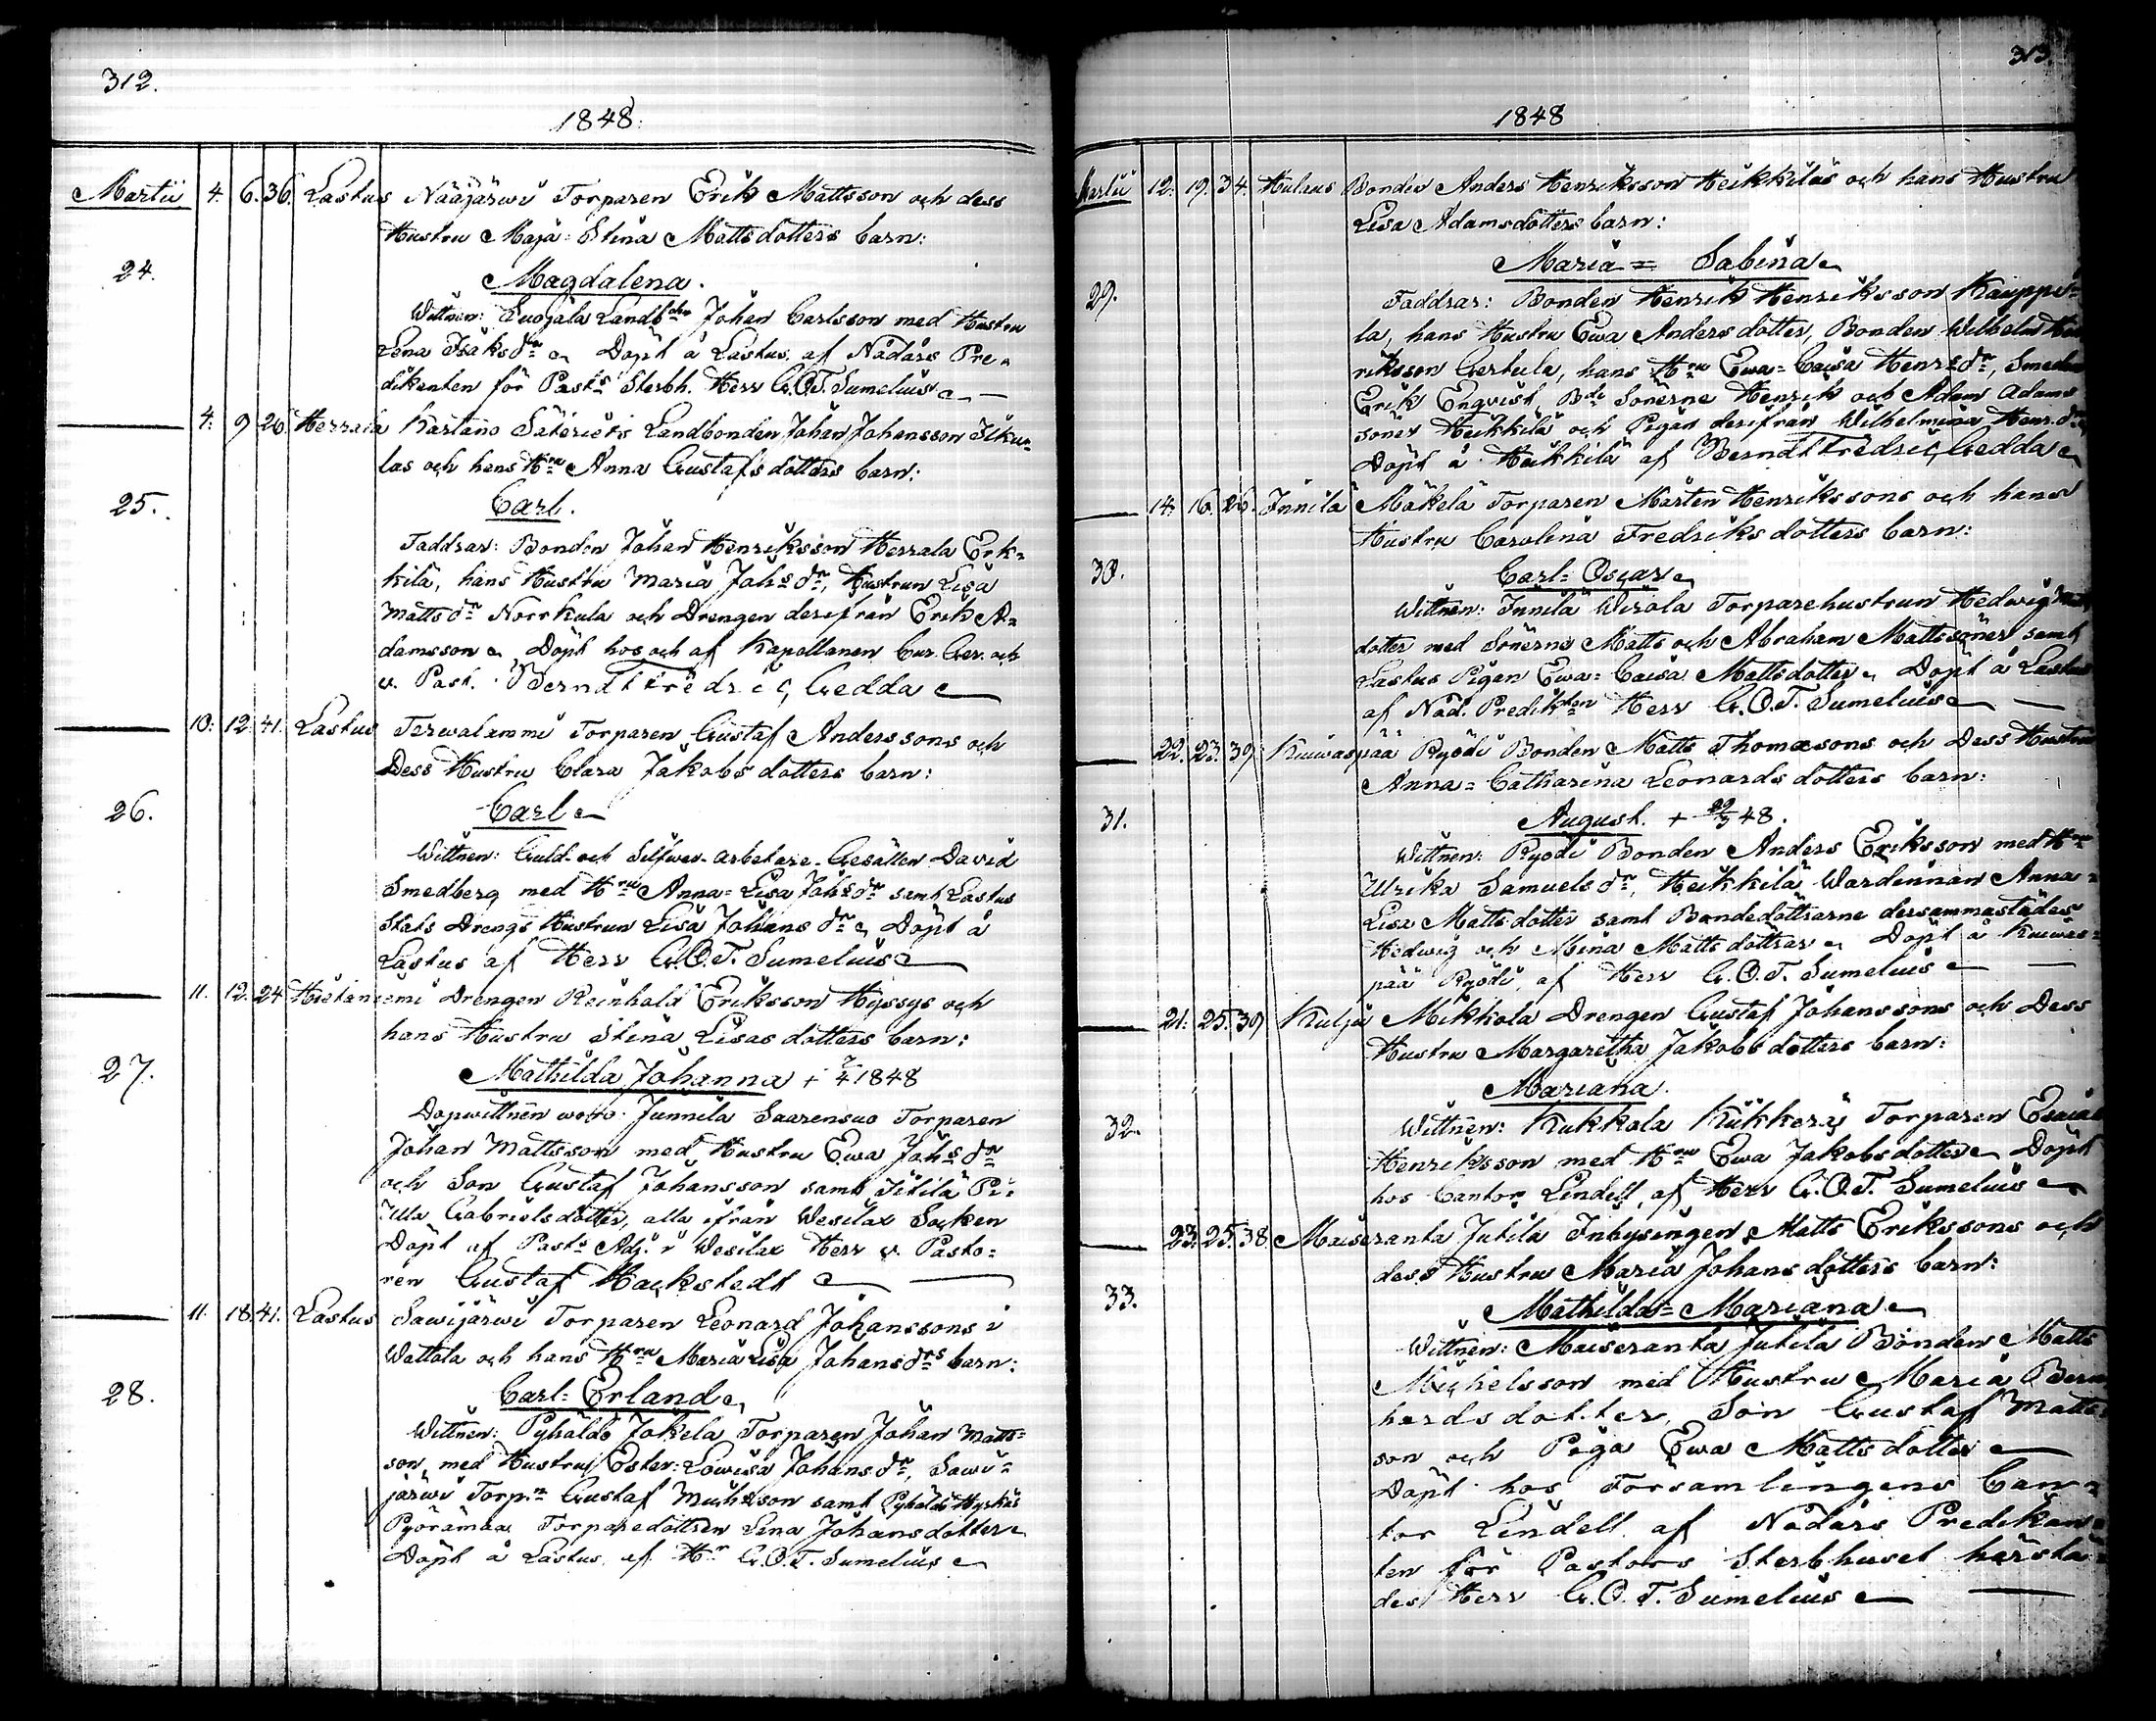 312.
1848.
Martii 4. 6. 36. Lastus Nääjärwi Torparen Erik Mattsson och dess
Hustru Maja-Stina Mattsdotters barn:
24.
Magdalena.
Wittnen: Suojala Landb:den Johan Carlsson med Hustru
Lena Isaksd:r Döpt å Lastus af Nådårs Pre-
dikanten för Past:s Sterbh. Herr G.O.T. Sumelius
4. 9 26 Herrala Kartano Säteriets Landbonden Johan Johansson Ilku-
las och hans H:ru Anna Gustafsdotters barn:
25.
Carl.
Faddrar: Bonden Johan Henriksson Herrala Erk-
kilä, hans Hustru Maria Joh:sd:r, Hustrun Lisa
Mattsd:r Norrkula och Drengen derifrån Erik A-
damsson Döpt hos och af Kapellanen Cur. Ger. och
v. Past. Berndt Fredric Gedda
10. 12. 41. Lastus Terwalammi Torparen Gustaf Anderssons och
Dess Hustru Clara Jakobsdotters barn:
26.
Carl
Wittnen: Guld- och Silfwer-arbetare-Gesällen David
Smedberg med H:ru Anna-Lisa Joh:sd:r samt Lastus
Stats Drengs Hustrun Lisa Johansd:r Döpt å
Lastus af Herr G.O.T. Sumelius
11. 12. 24 Hietaniemi Drengen Reinhold Eriksson Hyssys och
hans Hustru Stina Lisasdotters barn:
27.
Mathilda Johanna + 7/4 1848
Dopwittnen woro: Junnila Saarensuo Torparen
Johan Mattsson med Hustru Ewa Joh:sd:r
och Son Gustaf Johansson samt Iitilä Pi:
Ulla Gabrielsdotter, alla ifrån Wesilax Socken
Döpt af Past:s Adj. i Wesilax Herr v. Pasto-
ren Gustaf Hackstedt
11. 18. 41. Lastus Sawijärwi Torparen Leonard Johanssons i
Wattola och hans H:ru Maria Lisa Johansd:rs barn:
28.
Carl-Erland
Wittnen: Pyhäldö Jokela Torparen Johan Matts-
son, med Hustru Ester-Lowisa Johansd:r, Sawi-
järwi Torp:n Gustaf Michelsson samt Pyhäldö Hyrkäs
Pyörämaa Torparedottren Lena Johansdotter
Döpt å Lastus af H:r G.O.T. Sumelius
313.
1848
Martii 12. 19. 34. Huleus Bonden Anders Henriksson Heikkiläs och hans Hustru
Lisa Adamsdotters barn:
Maria-Sabina
29.
Faddrar: Bonden Henrik Henriksson Kauppi-
la, hans Hustru Ewa Andersdotter, Bonden Wilhelm Hen
riksson Gertula, hans H:ru Ewa-Caisa Henr:sd:r, Smeden
Erik Enqvist, B:de Sönerne Henrik och Adam Adams
söner Heikkilä och Pigan derifrån Wilhelmina Henr.d:r
Döpt å Heikkilä af Berndt Fredric Gedda
14. 16. 26. Innilä Mäkelä Torparen Mårten Henrikssons och hans
Hustru Carolina Fredriksdotters barn:
30.
Carl-Oscar
Wittnen: Innilä Wirola Torparehustrun Hedwig
dotter med Sönerne Matts och Abraham Mattssöner samt
Lastus Pigan Ewa-Caisa Mattsdotter Döpt å Lastus
af Nåd. Predik:ten Herr G.O.T. Sumelius
22. 23. 39. Kuiwaspää Ryödi Bonden Matts Thomæsons och Dess Hustru
Anna-Catharina Leonardsdotters barn:
31.
August. + 29/3 48.
Wittnen: Ryödi Bonden Anders Eriksson med H:ru
Ulrika Samuelsd:r, Heikkilä Wardinnan Anna-
Lisa Mattsdotter samt Bondedöttrarne dersammastädes
Hedwig och Mina Mattsdöttrar Döpt å Kuiwas-
pää Ryödi, af Herr G.O.T. Sumelius
21. 25. 39 Kulju Mikkola Drengen Gustaf Johanssons och Dess
Hustru Margaretha Jakobsdotters barn:
Mariana.
32.
Wittnen: Kukkola Kükkeri Torparen Esaias
Henriksson med H:ru Ewa Jakobsdotter Döpt
hos Cantor Lindell, af Herr G.O.T. Sumelius
23. 25. 38 Maiseranta Jutila Inhysingen Matts Erikssons och
dess Hustru Maria Johansdotters barn:
33.
Mathilda-Mariana
Wittnen: Maiseranta Jutila Bonden Matts
Michelsson med Hustru Maria Bern
hardsdotter, Son Gustaf Matts-
son och Piga Ewa Mattsdotter
Döpt hos Församlingens Can-
tor Lindell af Nådårs Predikan-
ten för Pastors Sterbhuset härstä-
des Herr G.O.T. Sumelius